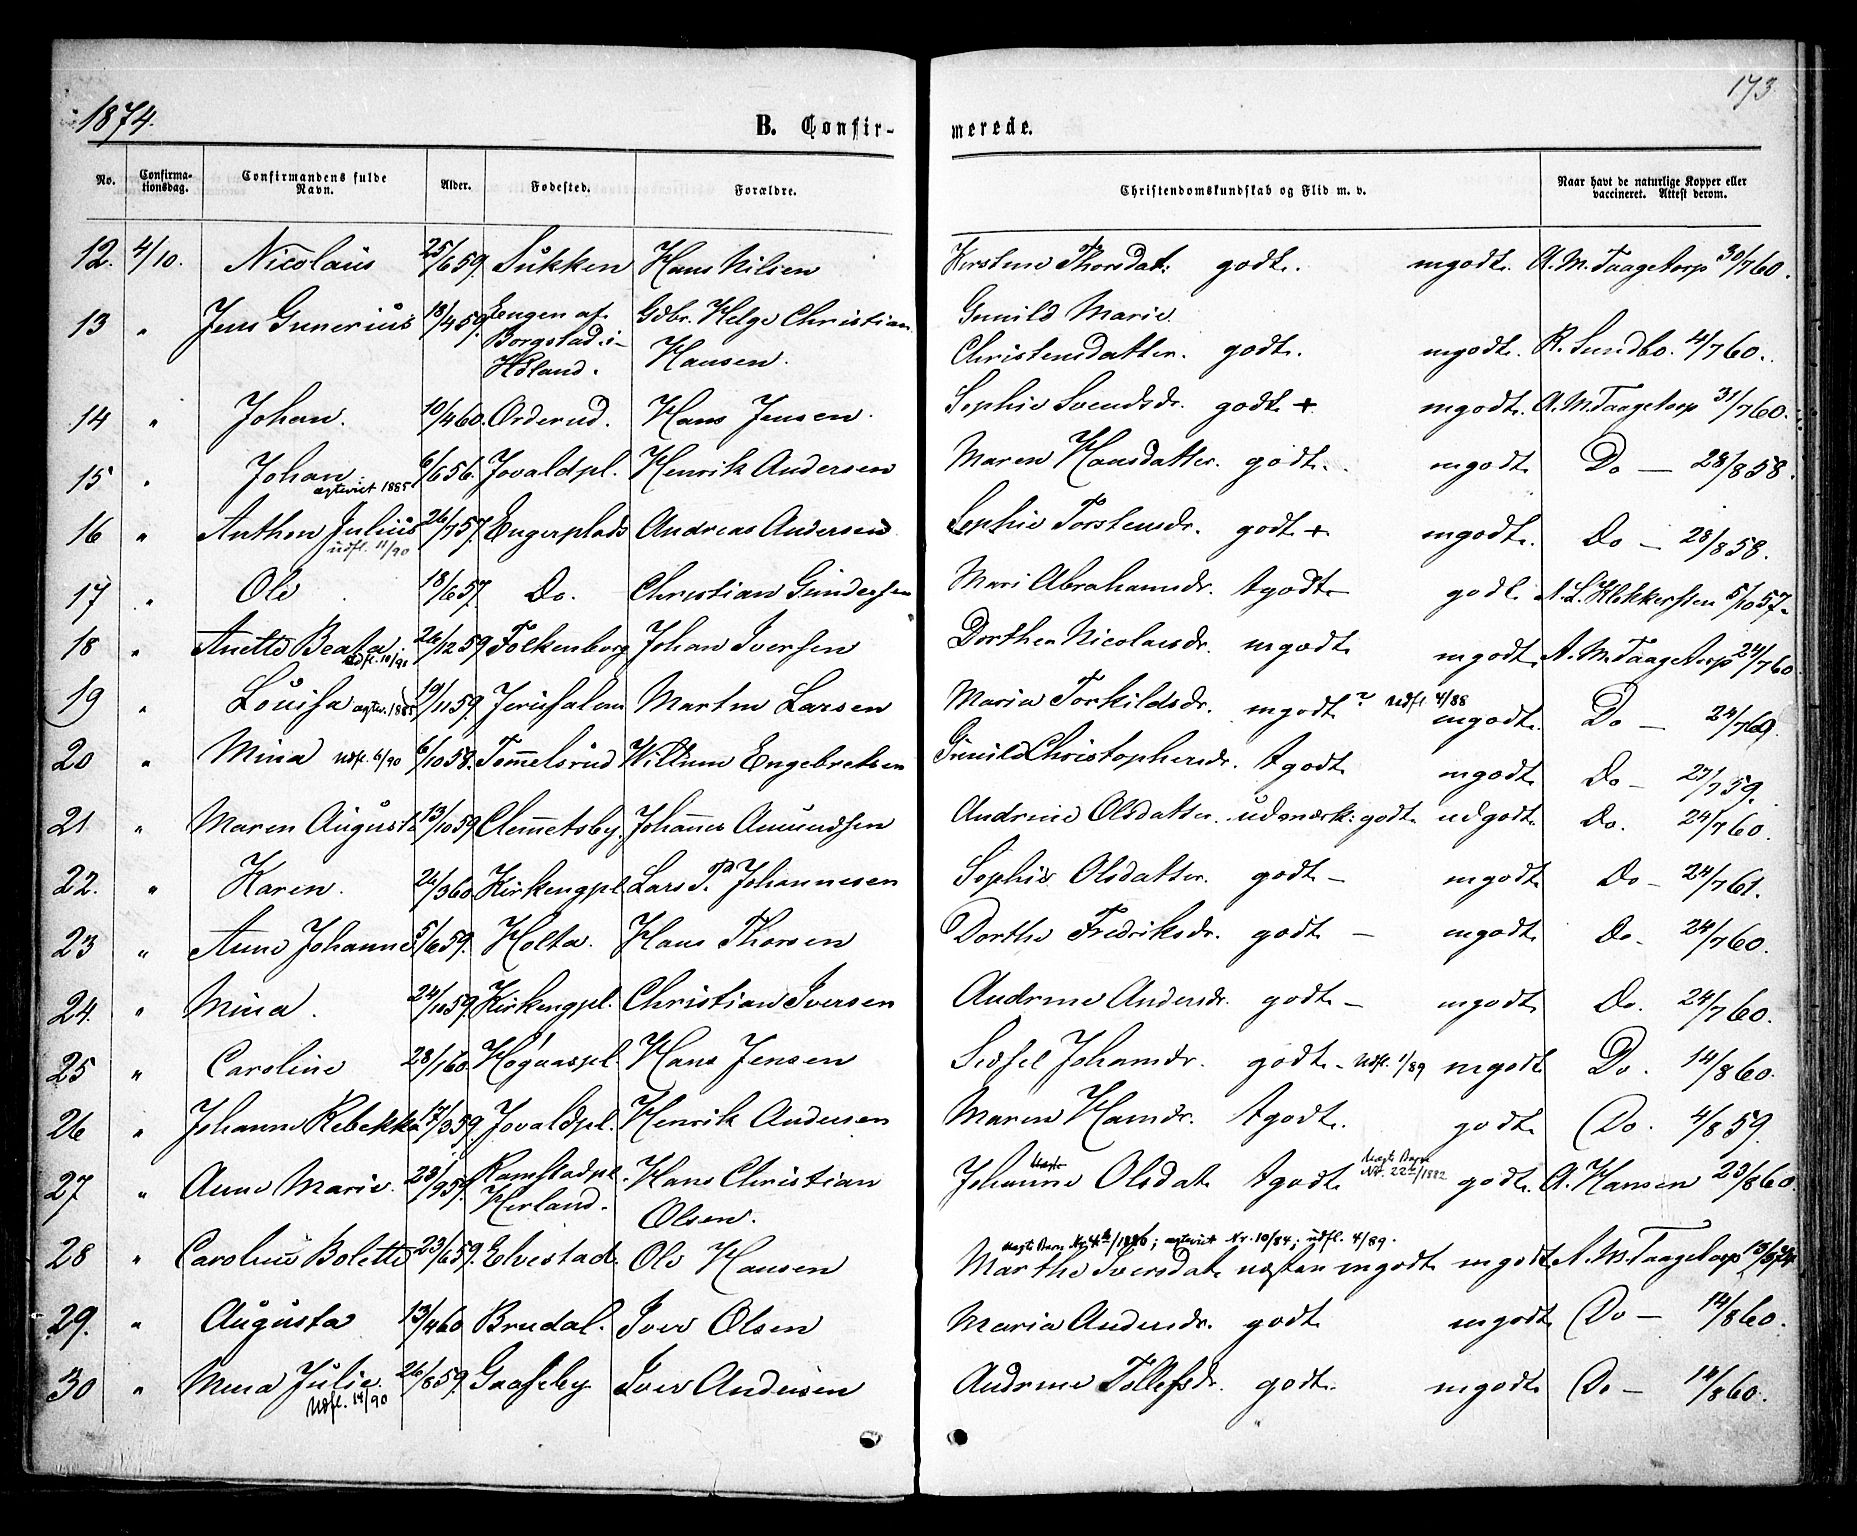 173
1874.
B. Confir-
merede.
No. Confirma-tionsdag. Confirmandens fulde Navn. Alder. Fødested. Forældre. Christendomskundskab og Flid m. v. Naar havt de naturlige Kopper eller vaccineret. Attest derom.
12. 4/10. Nicolaus 25/6 59. Sukken Hans Nilsen Kirstine Thorsdat: godt. mgodt. A. M. Taagetorp 30/7 60.
13 " Jens Gunerius 18/4 59. Engen af Gdbr. Helge Christian Gunild Marie
Borgstad i Høland. Hansen. Christensdatter. godt. mgodt. R. Sundbo. 4/7 60.
14 " Johan. 10/4 60. Orderud. Hans Jensen. Sophie Svendsdr. godt + mgodt. A. M. Taagetorp 31/7 60.
15 " Johan 6/6 56. Jovaldpl. Henrik Andersen Maren Hansdatter. godt. mgodt Do — 28/8 58.
agteviet 1885
16 " Anthon Julius 26/7 57. Engerplads Andreas Andersen Sophie Torstensdr. godt + mgodt. Do — 28/8 58.
udfl. 11/90
17 " Ole 18/6 57. Do. Christian Gundersen Mari Abrahamsdr. tgodt godt. A. L. Klokkersten 5/10 57.
18 " Anette Beata 26/12 59. Folkenborg Johan Iversen Dorthea Nicolaisdr. mgodt mgodt A. M. Taagetorp 24/7 60
udfl. 10/90
19 " Louisa agtev. 1885 19/11 59. Jerusalem Martin Larsen Maria Torkildsdr. mgodt ? udfl. 4/88 mgodt. Do — 24/7 60.
20 " Mina udfl. 6/90 6/10 58. Tommelsrud Willum Engebretsen Gunild Christophersdr. tgodt mgodt Do — 27/7 59.
21 " Maren Augusta 13/10 59. Clemmetsby. Johannes Amundsen Andrine Olsdatter. udmærk: godt. udgodt. Do. 24/7 60.
22. " Karen. 26/3 60. Kirkengpl. Lars P. Johannesen Sophie Olsdatter. godt — mgodt Do — 24/7 61.
23 " Anne Johanne 5/6 59. Holta. Hans Thorsen Dorthe Fredriksdr. godt — mgodt Do. 24/7 60.
24. " Mina. 24/10 59. Kirkengpl. Christian Iversen Andrine Andersdr. godt — mgodt Do. 24/7 60.
25 " Caroline 28/1 60. Høgaaspl. Hans Jensen Sidsel Johansdr. godt — udfl. 1/89 mgodt Do. 14/8 60.
26 " Johanne Rebekka 17/3 59. Jovaldpl. Henrik Andersen Maren Hansdr. tgodt. godt Do. 4/8 59.
27 " Anne Marie. 23/9 59. Ramstadpl. Hans Christian Johanne Olsdat. tgodt Nr. 22/1882 godt. A. Hansen 23/8 60.
Herland. Olsen.
Nr. 4/1886; agteviet Nr. 10/84; udfl. 4/89.
28 " Caroline Bolette 23/6 59. Elvestad. Ole Hansen Marthe Iversdat. næsten mgodt mgodt A. M. Taagetorp
29. " Augusta 13/4 60 Brudal. Iver Olsen Maria Andersdr. godt mgodt Do — 14/8 60.
30 " Mina Julie. 26/8 59. Gaaseby Iver Andersen Andrine Tollefsdr. godt. mgodt Do — 14/8 60.
udfl. 14/90